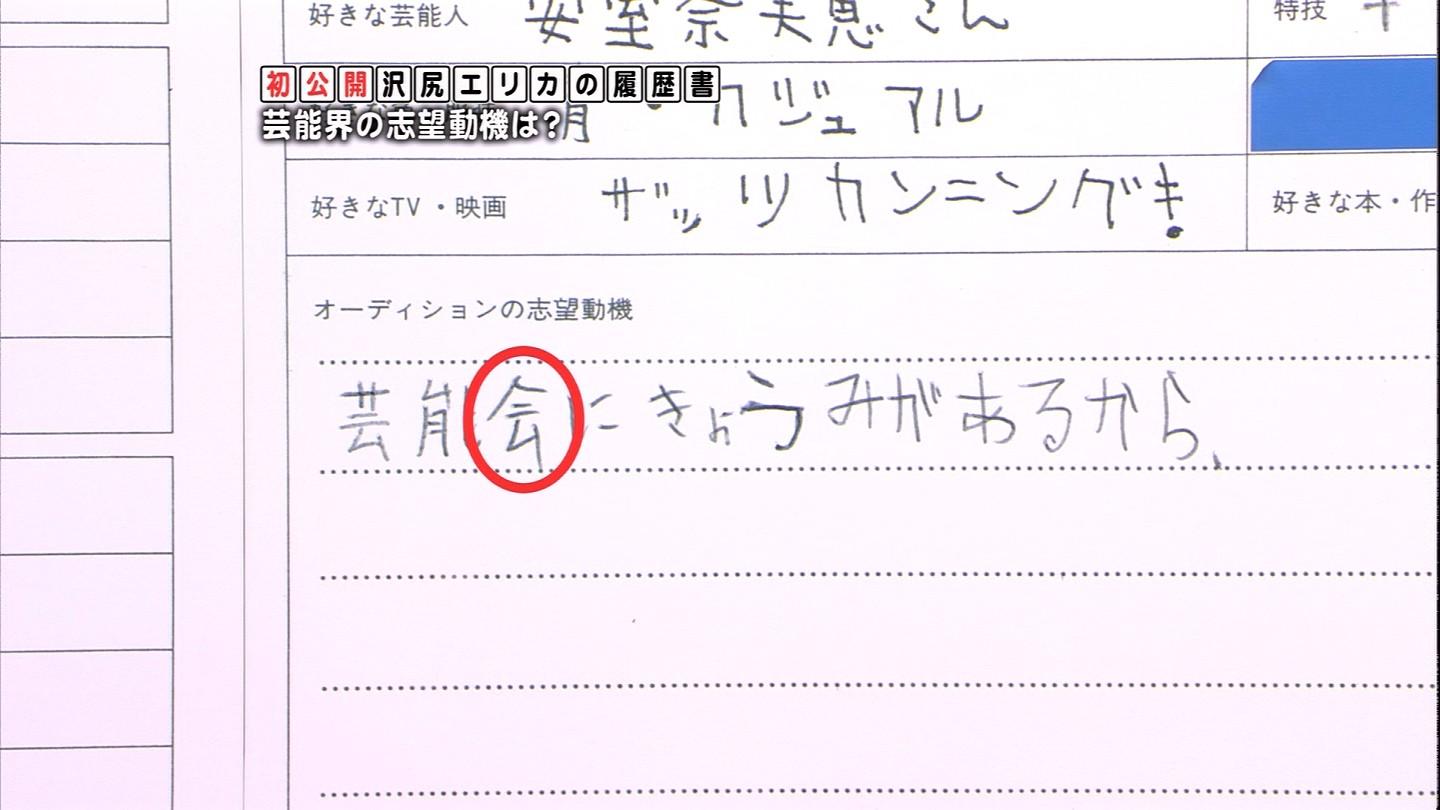 好きな芸能人 安室奈美恵さん 特技
初公開沢尻エリカの履歴書
芸能界の志望動機は?
・カジュアル
好きなTV・映画 ザッツカンニングキ. 好きな本・作
オーディションの志望動機
芸能会にきょうみがあるから、